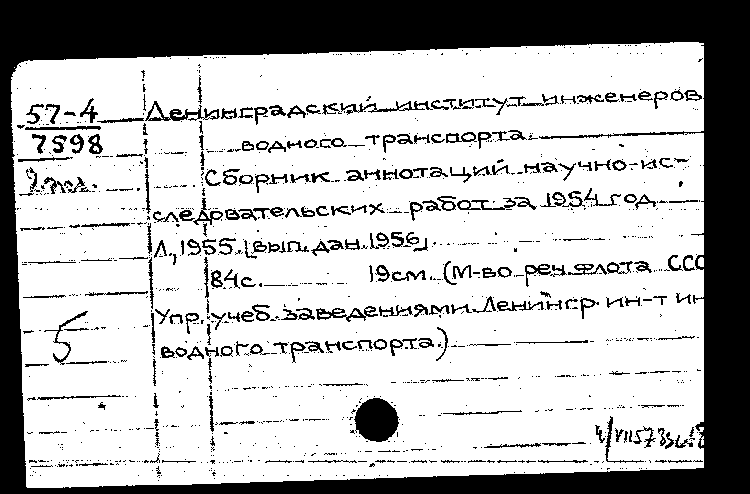 57-4 Ленинградский институт инженеров
7598 водного транспорта.
Сборник аннотаций научно-ис-
следовательских работ за 1954 год
Л., 1955. [вып. дан. 1956].
84с. 19см. (М-во реч. флота ССС
5 Упр. учеб. заведениями. Ленингр. ин-т ин
водного транспорта.)